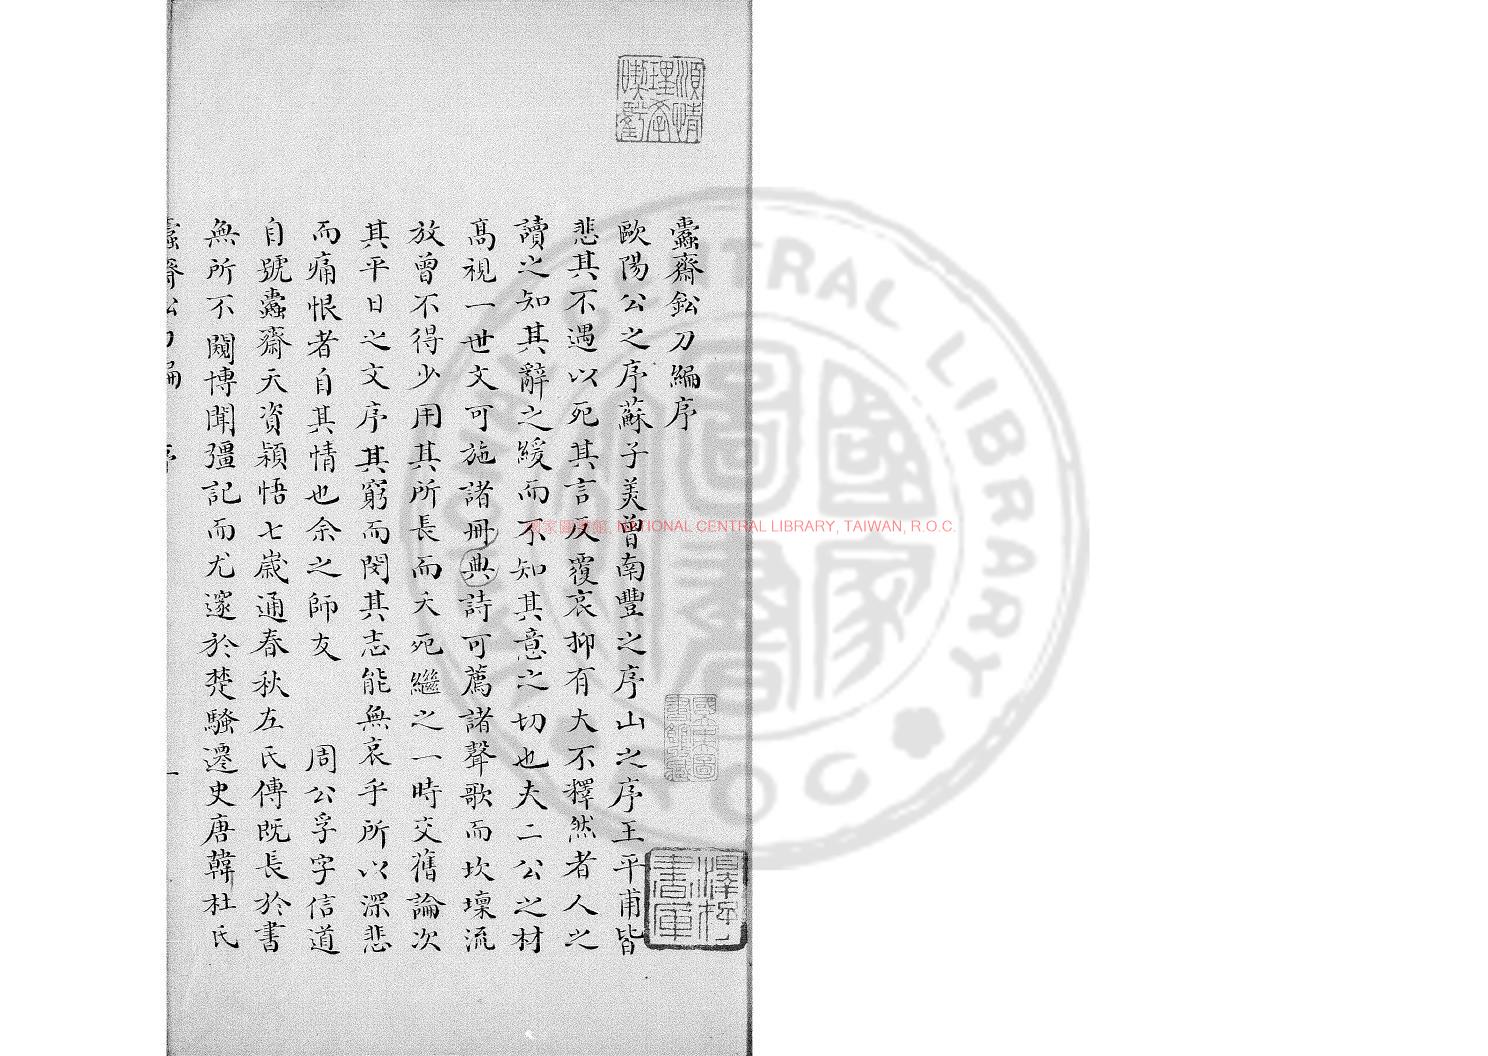 蠹齋鈆刀編序
歐陽公之序蘇子美曾南豐之序山之序王平甫皆
悲其不遇以死其言反覆哀抑有大不釋然者人之
讀之知其辭之緩而不知其意之切也夫二公之材
高視一世文可施諸冊典詩可薦諸聲歌而坎壈流
放曾不得少用其所長而夭死繼之一時交舊論次
其平日之文序其窮而閔其志能無哀乎所以深悲
而痛恨者自其情也余之師友 周公孚字信道
自號蠹齋天資穎悟七歲通春秋左氏傳既長於書
無所不闚博聞彊記而尤邃於楚騷遷史唐韓杜氏
蠹齋鈆刀編 序 一
順情
理
澤存書庫
國立中央圖書館藏
國家圖書館, NATIONAL CENTRAL LIBRARY, TAIWAN, R.O.C.